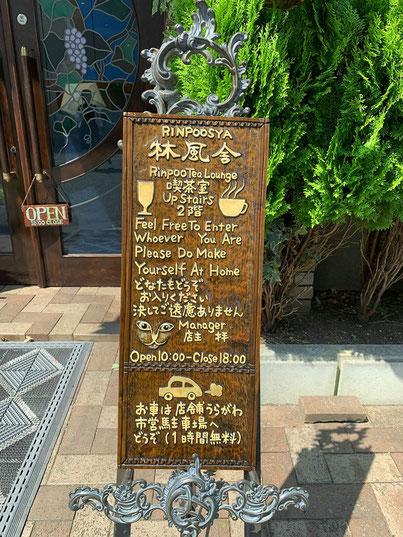 RINPOOSYA
林風舎
Rinpoo Tea Lounge
喫茶室
Up Stairs
2階
Feel Free To Enter
Whoever You Are
Please Do Make
Yourself At Home
どなたもどうぞ
お入りください
決してご遠慮ありません
Manager
店主 拝
Open 10:00-Close 18:00
お車は店舗うらがわ
市営駐車場へ
どうぞ(1時間無料)
OPEN